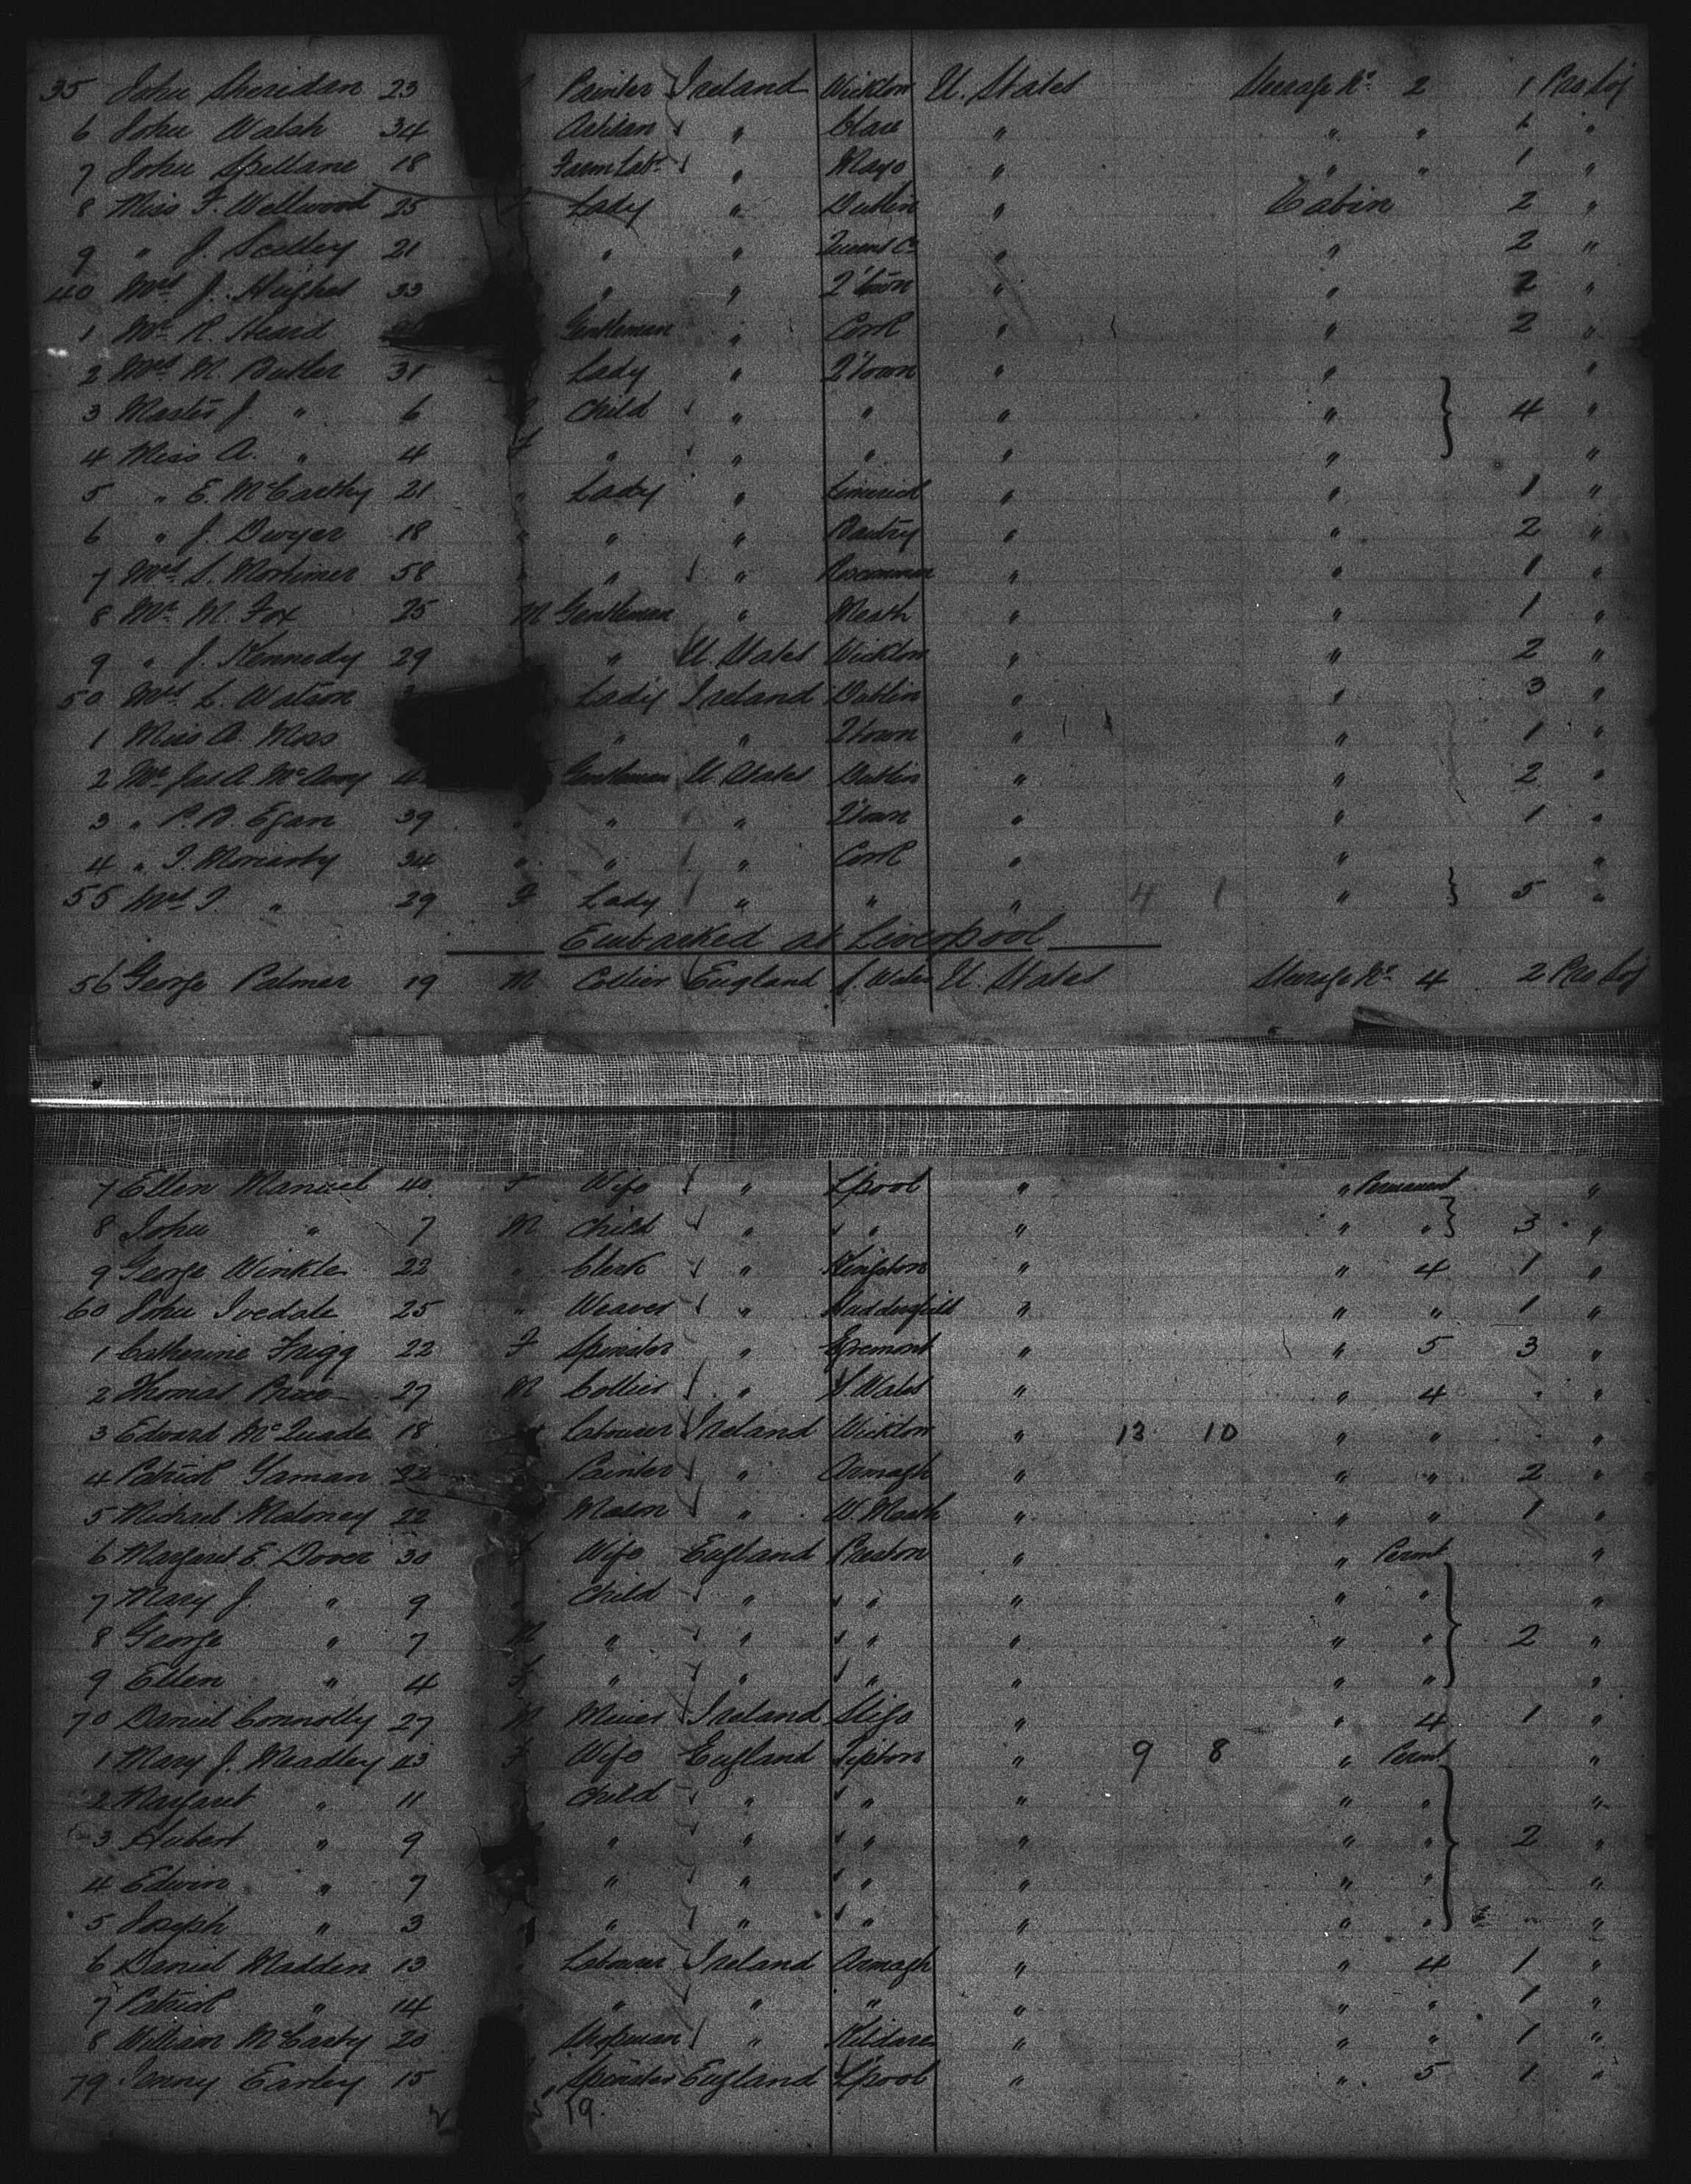 35 John Sheridan 23 Painter Ireland Wicklow U. States Steerage No. 2 1 Pro Soj
6 John Walsh 34 Artizan " Clare " " " 1 "
7 John Spellane 18 Farm Labr " Mayo " " " 1 "
8 Miss F. Wellwood 25 F Lady " Dublin " Cabin 2 "
9 " J. 21 " " Queens Co " " 2 "
40 Mrs J. Hughes 33 " " Q'town " " 2 "
1 Mr R. Heard Gentleman " Cork " " 2 "
2 Mrs M. Butler 31 Lady " Q'town " " "
3 Master J " 6 Child " " " " 4 "
4 Miss A. " 4 F " " " " " "
5 " E. McCarthy 21 " Lady " Limerick " " 1 "
6 " J. Dwyer 18 " " " Bantry " " 2 "
7 Mrs S. Mortimer 58 " " " Roscommon " " 1 "
8 Mr M. Fox 25 M Gentleman " Meath " " 1 "
9 " J. Kennedy 29 " U. States Wicklow " " 2 "
50 Mrs L. Watson Lady Ireland Dublin " " 3 "
1 Miss A. Moss " " Q'town " " 1 "
2 Mr Jas A. Gentleman U. States Dublin " " 2 "
3 " P. D. Egan 39 " " " Q'town " " 1 "
4 " T. Moriarty 34 " " " Cork " " "
55 Mrs T. " 29 F Lady " " " 4 1 " 5 "
Embarked at Liverpool
56 George Palmer 19 M Collier England S. Wales U. States Steerage No. 4 2 Pro Soj
7 Ellen Manuel 40 F Wife " L'pool " " Permanent "
8 John " 7 M Child " " " " " 3 "
9 George Winkle 22 " Clerk " Kingston " " 4 1 "
60 John Ivedale 25 " Weaver " Huddersfield " " " 1 "
1 Catherine Frigg 22 F Spinster " Egremont " " 5 3 "
2 Thomas Price 27 M Collier " S Wales " " 4 "
3 Edward McQuade 18 Labourer Ireland Wicklow " 13 10 " " "
4 Patrick Gaman 22 Painter " Armagh " " " 2 "
5 Michael Maloney 22 Mason " W. Meath " " " 1 "
6 Margaret E. Dover 30 F Wife England Preston " " Permt "
7 Mary J. " 9 " Child " " " " " "
8 George " 7 M " " " " " " 2 "
9 Ellen " 4 F " " " " " " "
70 Daniel Connolly 27 M Miner Ireland Sligo " " 4 1 "
1 Mary J. Meadley 43 F Wife England Tipton " 9 8 " Permt "
2 Margaret " 11 Child " " " " " "
3 Hubert " 9 " " " " " " 2 "
4 Edwin " 7 " " " " " " "
5 Joseph " 3 " " " " " " "
6 Daniel Madden 13 " Labourer Ireland Armagh " " 4 1 "
7 Patrick " 14 " " " " " " " 1 "
8 William McCarty 20 Shopman " Kildare " " " 1 "
79 Jenny Earley 15 Spinster England L'pool " " 5 1 "
19.